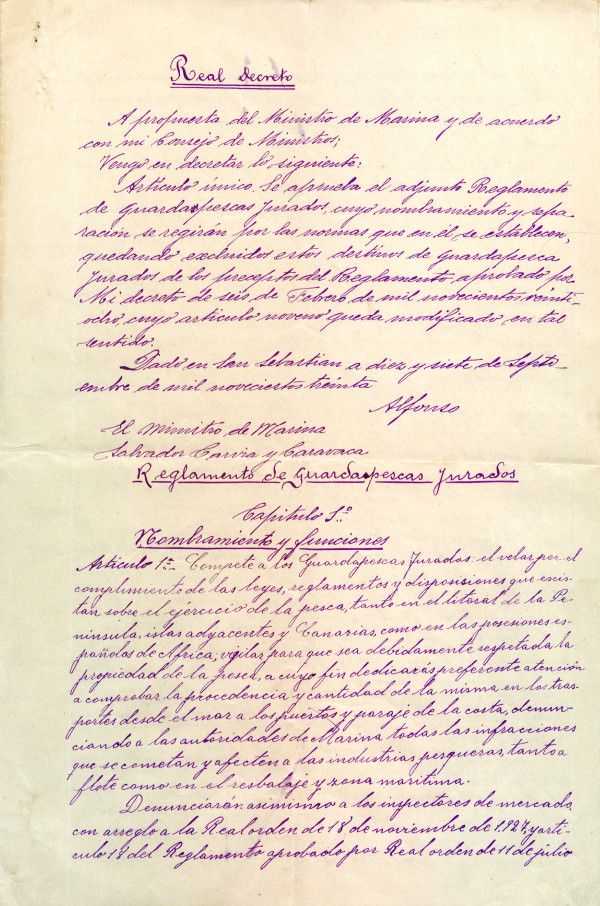 Real Decreto
A propuesta del Ministro de Marina y de acuerdo
con mi Consejo de Ministros;
Vengo en decretar lo siguiente:
Artículo único. Se aprueba el adjunto Reglamento
de guardapescas Jurados, cuyo nombramiento y sepa-
ración se regirán por las normas que en él se establecen,
quedando excluidos estos destinos de guardapesca
Jurados de los preceptos del Reglamento, aprobado por
Mi decreto de seis, de Febrero, de mil novecientos veinti-
ocho, cuyo artículo noveno queda modificado en tal
sentido.
Dado en San Sebastian a diez y siete de Septi-
embre de mil novecientos treinta
Alfonso
El Ministro de Marina
Salvador Carvia y Caravaca
Reglamento de Guardapescas Jurados
Capitulo 1.º
Nombramiento y funciones
Artículo 1º Compete a los Guardapescas Jurados: el velar por el
cumplimiento de las leyes, reglamentos y disposiciones que exis-
tan sobre el ejercicio de la pesca, tanto en el litoral de la Pe-
ninsula, islas adyacentes y Canarias, como en las posesiones es-
pañolas de Africa; vigilar para que sea debidamente respetada la
propiedad de la pesca, a cuyo fin dedicarás preferente atención
a comprobar la procedencia y cantidad de la misma en los tras-
portes desde el mar a los puertos y paraje de la costa, denun-
ciando a las autoridades de Marina todas las infracciones
que se cometan y afecten a las industrias pesqueras, tanto a
flote como en el resbalaje y zona maritima.
Denunciarán asimismo a los inspectores de mercado,
con arreglo a la Real orden de 18 de noviembre de 1.927, y artí-
culo 18 del Reglamento aprobado por Real orden de 11 de julio